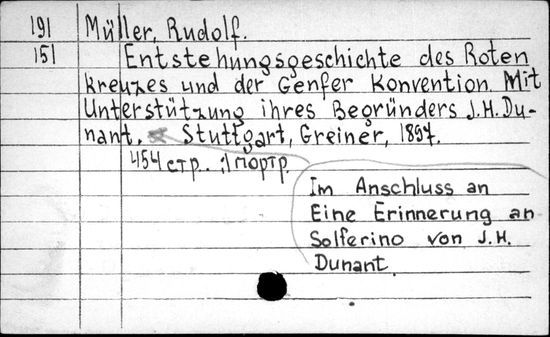 191 Müller, Rudolf.
151 Entstehungsgeschichte des Roten
Kreuzes und der Genfer Konvention. Mit
Unterstützung ihres Begründers J.H. Du-
nant. Stuttgart, Greiner, 1897.
454 стр.. ; 1 портр.
Im Anschluss an
Eine Erinnerung an
Solferino von J.H.
Dunant.